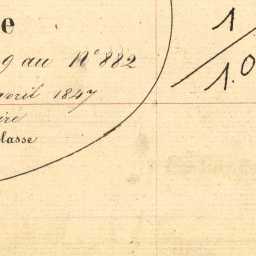 e
9 au N° 882
avril 1847
ire
classe
1
1.0